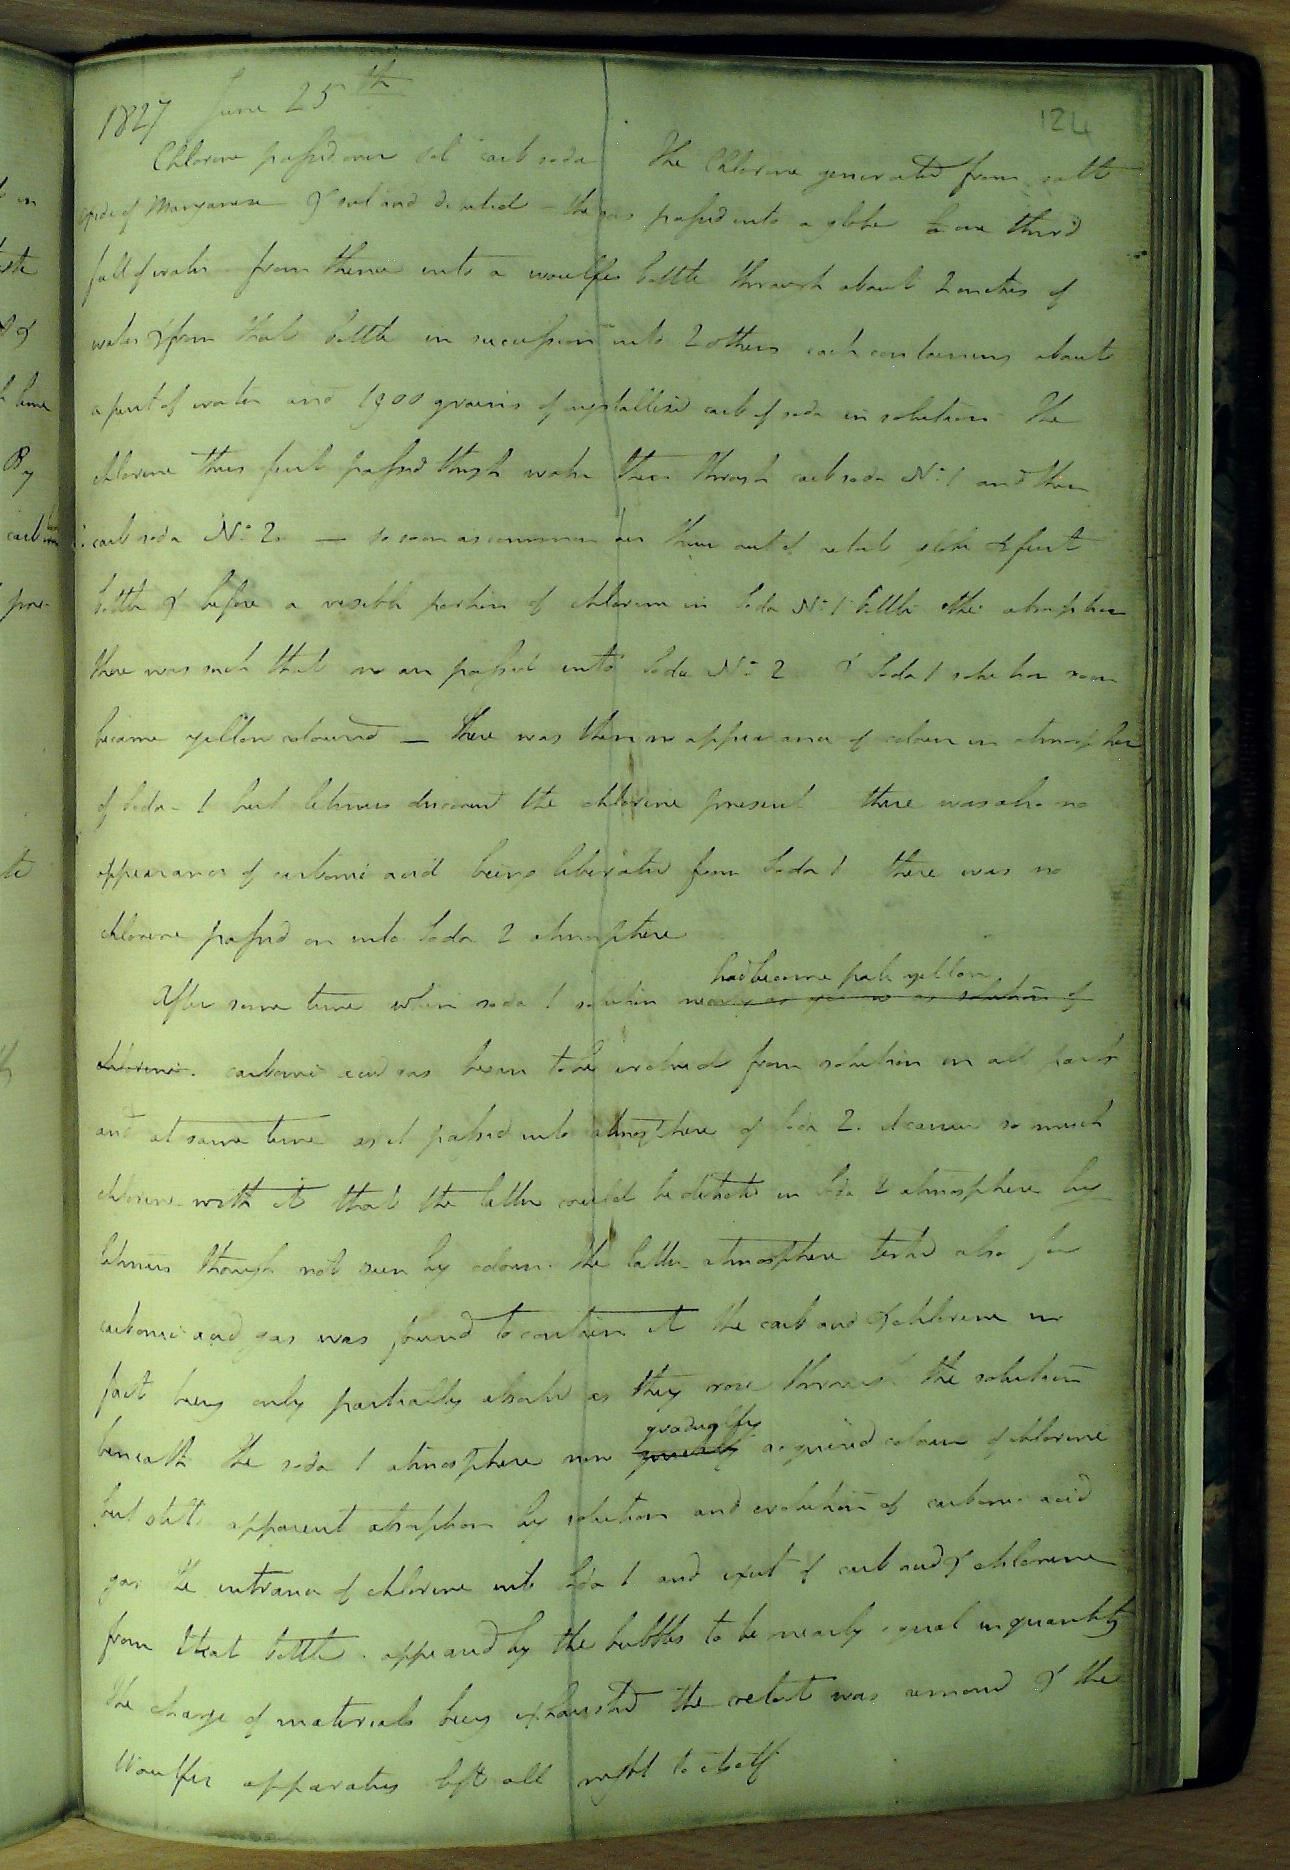 124
1827 June 25th
Chlorine passed over sol carb soda The Chlorine generated from salt
oxide of Manganese & sul acid diluted - the gas passed into a globe to one third
full of water from thence into a woulfes bottle through about 2 inches of
water & from that bottle in succession into 2 others each containing about
a pint of water and 1900 grains of crystallised carb of soda in solution The
chlorine thus first passed through water then through carb soda No 1 and then
carb soda No 2. — so soon as common air thrown out of retort globe & first
bottle & before a visible portion of chlorine in Soda No 1 bottle the absorption
there was such that no air passed into Soda No 2 & Soda 1 solution soon
became yellow coloured — there was then no appearance of colour in atmosphere
of Soda 1 but litmus discovered the chlorine present there was also no
appearance of carbonic acid being liberated from Soda 1 there was no
chlorine passed on into Soda 2 atmosphere
had become pale yellow
After some time when soda 1 solution nearly as yellow as solution of
chlorine. carbonic acid gas began to be evolved from solution in all parts
and at same time as it passed into atmosphere of Soda 2. it carried so much
chlorine with it that the latter could be detected in Soda 2 atmosphere by
litmus though not seen by colour. the latter atmosphere tested also for
carbonic acid gas was found to contain it the carb acid & chlorine in
fact being only partially absorbed as they rose through the solution
gradually
beneath the soda 1 atmosphere now acquired colour of chlorine
but still apparent absorption by solution and evolution of carbonic acid
gas the entrance of chlorine into Soda 1 and exit of carb acid & chlorine
from that bottle appeared by the bubbles to be nearly equal in quantity
The charge of materials being exhausted the retort was removed & the
Woulfes apparatus left all night to itself